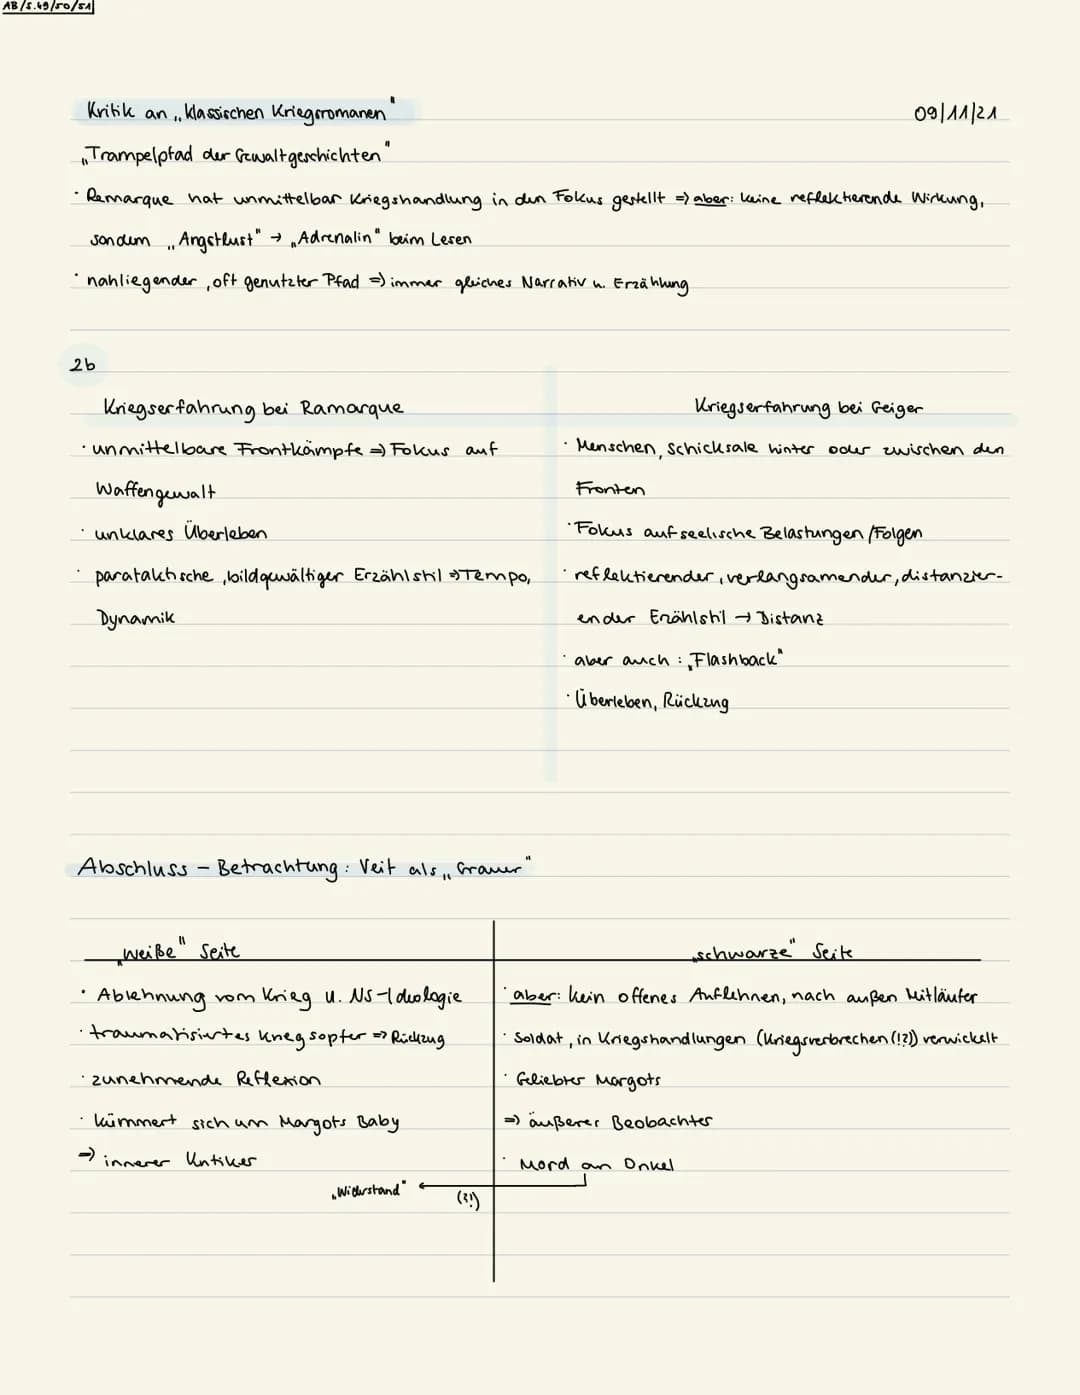 AB/S.49/50/51
Kritik an „klassischen Kriegsromanen"
09/11/21
„Trampelpfad der Gewaltgeschichten"
· Remarque hat unmittelbar Kriegshandlung in den Fokus gestellt => aber: keine reflektierende Wirkung,
sondern „Angstlust" → „Adrenalin" beim Lesen
· nahliegender, oft genutzter Pfad => immer gleiches Narrativ u. Erzählung
2b
Kriegserfahrung bei Ramarque
· unmittelbare Frontkämpfe => Fokus auf
Waffengewalt
· unklares Überleben
· parataktische, bildgewältiger Erzählstil => Tempo,
Dynamik
Kriegserfahrung bei Geiger
· Menschen, Schicksale hinter oder zwischen den
Fronten
· Fokus auf seelische Belastungen/Folgen
· reflektierender, verlangsamender, distanzier-
ender Erzählstil → Distanz
· aber auch: „Flashback"
· Überleben, Rückzug
Abschluss - Betrachtung: Veit als „Grauer"
„weiße" Seite
· Ablehnung vom Krieg u. NS-Ideologie
· traumatisiertes Kriegsopfer => Rückzug
· zunehmende Reflexion
· kümmert sich um Margots Baby
=> innerer Kritiker
„Widerstand"
(?!)
„schwarze" Seite
· aber: kein offenes Auflehnen, nach außen Mitläufer
· Soldat, in Kriegshandlungen (Kriegsverbrechen(!?)) verwickelt
· Geliebter Margots
=> äußerer Beobachter
· Mord an Onkel